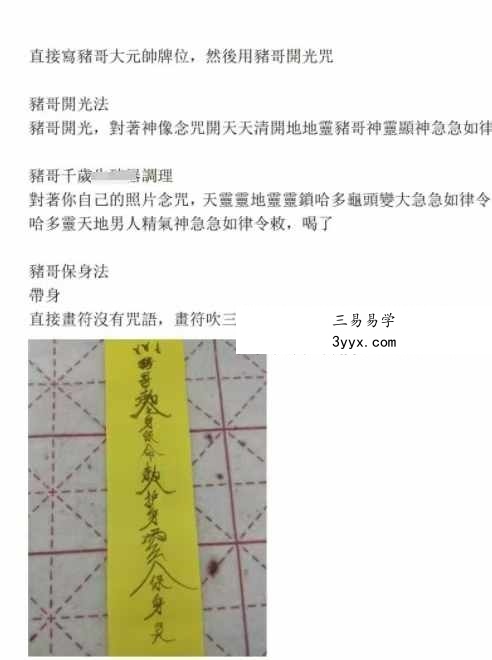 直接寫豬哥大元帥牌位，然後用豬哥開光咒
豬哥開光法
豬哥開光，對著神像念咒開天天清開地地靈豬哥神靈顯神急急如律
豬哥千歲 調理
對著你自己的照片念咒，天靈靈地靈靈鎖哈多龜頭變大急急如律令
哈多靈天地男人精氣神急急如律令敕，喝了
豬哥保身法
帶身
直接畫符沒有咒語，畫符吹三
三易易学
3yyx.com
哥
身
保
命
护
身
保
身